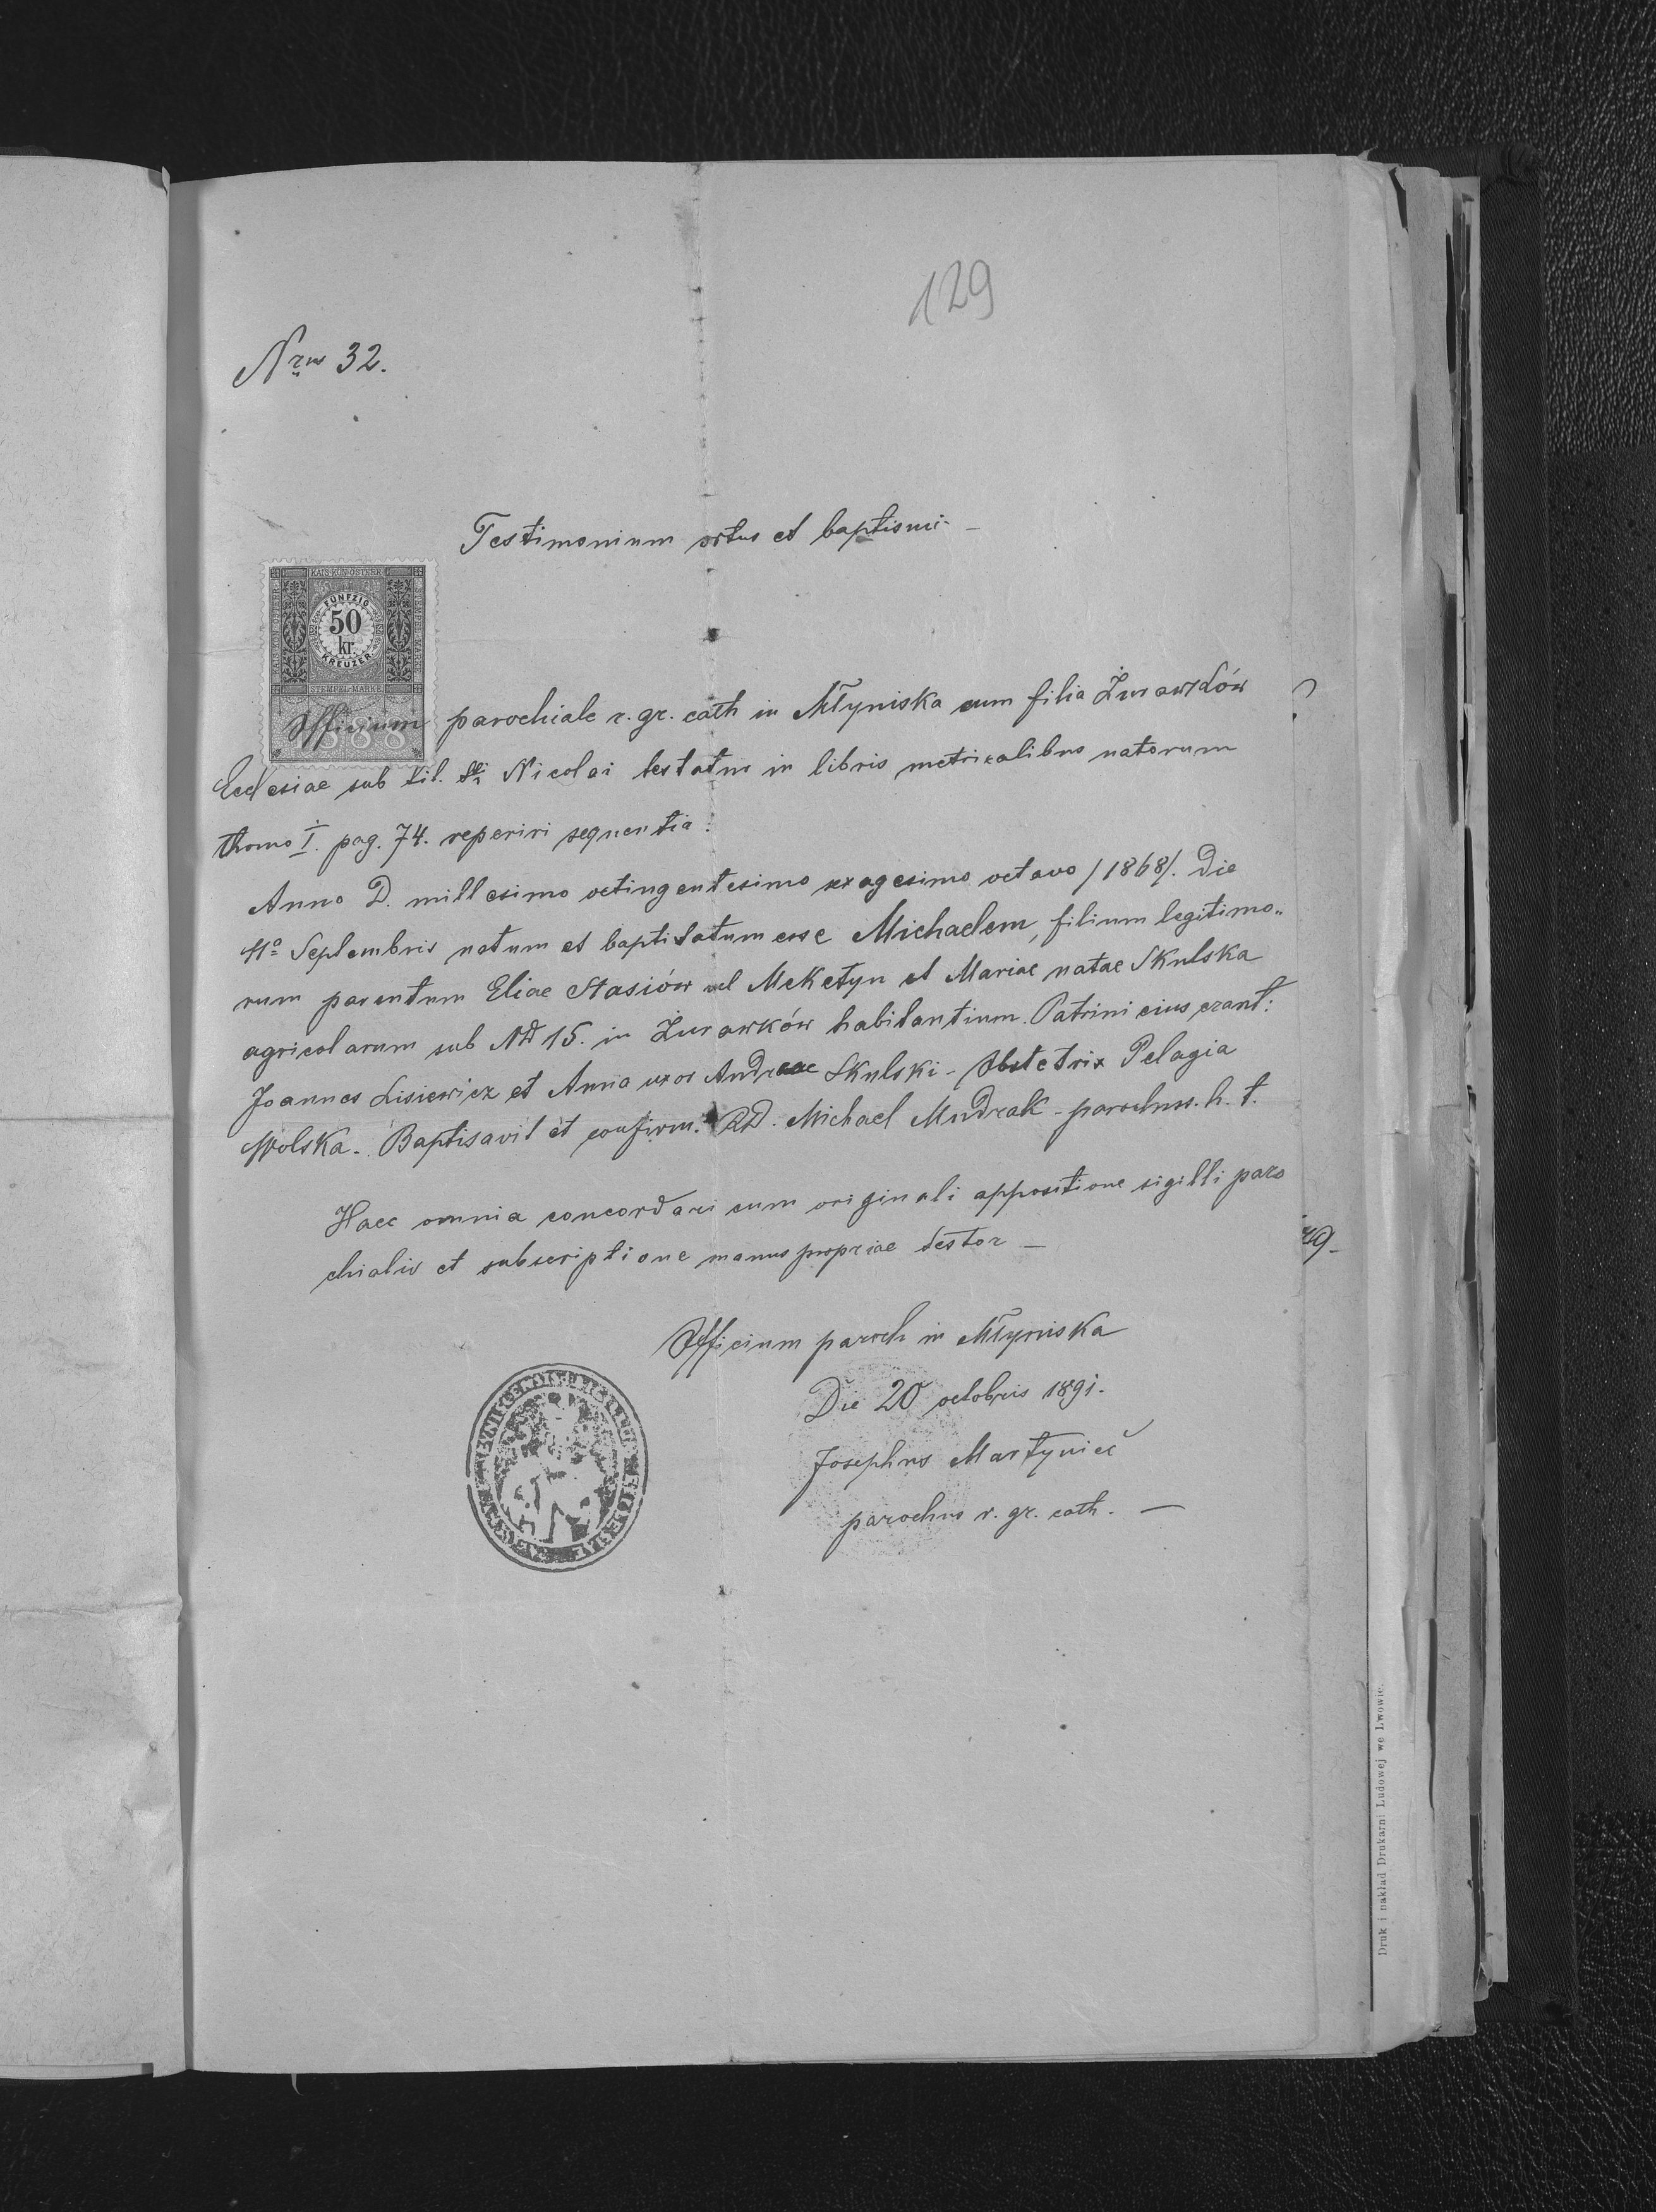 129
Nrus 32.
Testimonium ortus et baptismi -
KAIS. KÖN. ÖSTERR.
FÜNFZIG
50
kr.
KREUZER
STEMPEL-MARKE
1888
Officium parochiale r. gr. cath in Młyniska cum filia Żurawków
Ecclesiae sub tit. Sti Nicolai testatur in libris metricalibus natorum
thomo I. pag. 74. reperiri sequentia:
Anno D. millesimo octingentesimo sexagesimo octavo /1868/. Die
11º Septembris natum et baptisatum esse Michaelem, filium legitimo„
rum parentum Eliae Stasiów vel Meketyn et Mariae natae Skulska
agricolarum sub Nd 15. in Żurawków habitantium. Patrini eius erant:
Joannes Lisiewicz et Anna uxor Andreae Skulski - Obstetrix Pelagia
Wolska. Baptisavit et confirm. RD. Michael Mudrak - parochus. h. t.
Haec omnia concordari cum originali appositione sigilli paro
chialis et subscriptione manus propriae testor -
Officium paroch in Młyniska
Die 20 octobris 1891.
Josephus Martyniec
parochus r. gr. cath. -
Druk i nakład Drukarni Ludowej we Lwowie.